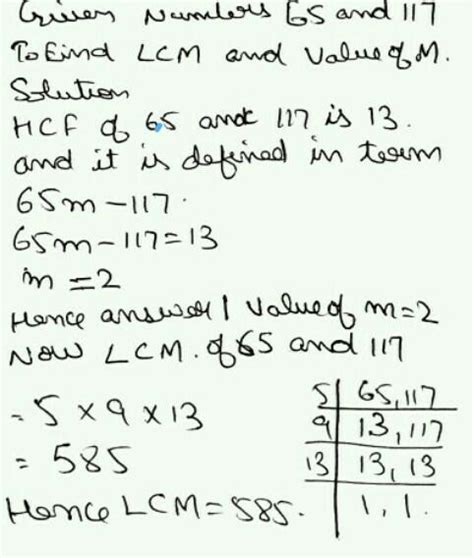 Given Numbers 65 and 117
To Find LCM and Value of M.
Solution
HCF of 65 and 117 is 13.
and it is defined in term
65m - 117.
65m - 117 = 13
m = 2
Hence answer 1 Value of m = 2
Now LCM. of 65 and 117
= 5 × 9 × 13
= 585
Hence LCM = 585.
5 | 65, 117
9 | 13, 117
13 | 13, 13
1, 1.